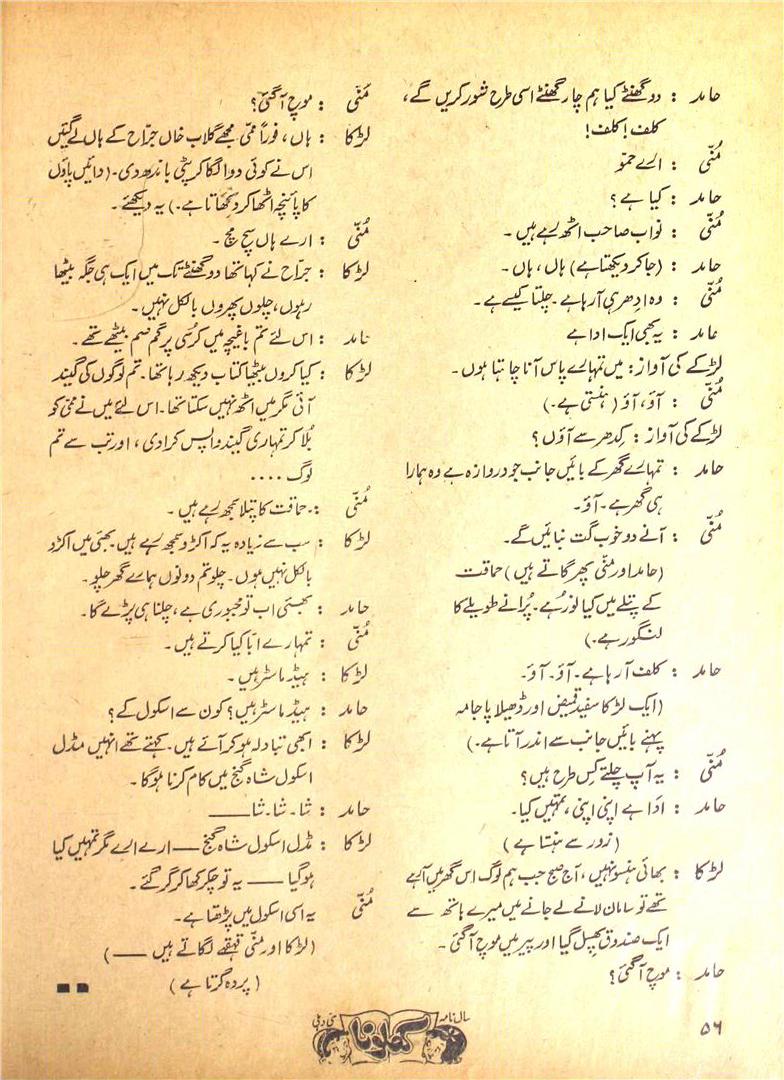 حامد : دو گھنٹے کیا ہم چار گھنٹے اسی طرح شور کریں گے،
کلف! کلف!
مُنّی : ارے حمّو
حامد : کیا ہے؟
مُنّی : نواب صاحب اٹھ رہے ہیں۔
حامد : (جا کر دیکھتا ہے) ہاں، ہاں۔
مُنّی : وہ ادھر ہی آ رہا ہے۔ چلتا کیسے ہے۔
حامد : یہ بھی ایک ادا ہے
لڑکے کی آواز : میں تمہارے پاس آنا چاہتا ہوں۔
مُنّی : آؤ، آؤ (ہنستی ہے۔)
لڑکے کی آواز : کِدھر سے آؤں؟
حامد : تمہارے گھر کے بائیں جانب جو دروازہ ہے وہ ہمارا
ہی گھر ہے۔ آؤ۔
مُنّی : آنے دو خوب گت بنائیں گے۔
(حامد اور مُنّی پھر گاتے ہیں) حماقت
کے پتلے میں کیا نور ہے۔ پُرانے طویلے کا
لنگور ہے۔)
حامد : کلف آ رہا ہے۔ آؤ۔ آؤ۔
(ایک لڑکا سفید قمیض اور ڈھیلا پاجامہ
پہنے بائیں جانب سے اندر آتا ہے۔)
مُنّی : یہ آپ چلتے کِس طرح ہیں؟
حامد : ادا ہے اپنی اپنی، تمہیں کیا۔
(زور سے ہنستا ہے)
لڑکا : بھائی ہنسو نہیں، آج صبح جب ہم لوگ اس گھر میں آئے
تھے تو سامان لانے لے جانے میں میرے ہاتھ سے
ایک صندوق پھسل گیا اور پیر میں موچ آ گئی۔
حامد : موچ آ گئی؟
مُنّی : موچ آ گئی؟
لڑکا : ہاں، فوراً ممّی مجھے گلاب خاں جرّاح کے ہاں لے گئیں
اس نے کوئی دوا لگا کر پٹی باندھ دی۔ (دائیں پاؤں
کا پائنچہ اٹھا کر دکھاتا ہے۔) یہ دیکھئے۔
مُنّی : ارے ہاں سچ مچ۔
لڑکا : جرّاح نے کہا تھا دو گھنٹے تک میں ایک ہی جگہ بیٹھا
رہوں، چلوں پھروں بالکل نہیں۔
حامد : اس لئے تم باغیچہ میں کرسی پر گم صم بیٹھے تھے۔
لڑکا : کیا کروں بیٹھا کتاب دیکھ رہا تھا۔ تم لوگوں کی گیند
آئی مگر میں اٹھ نہیں سکتا تھا۔ اس لئے میں نے ممّی کو
بُلا کر تمہاری گیند واپس کرا دی، اور تب سے تم
لوگ ....
مُنّی :۔ حماقت کا پتلا سمجھ رہے ہیں۔
لڑکا : سب سے زیادہ یہ کہ اکڑو سمجھ رہے ہیں۔ بھئی میں اکڑو
بالکل نہیں ہوں۔ چلو تم دونوں ہمارے گھر چلو۔
حامد : بھئی اب تو مجبوری ہے، چلنا ہی پڑے گا۔
مُنّی : تمہارے ابّا کیا کرتے ہیں۔
لڑکا : ہیڈ ماسٹر ہیں۔
حامد : ہیڈ ماسٹر ہیں؟ کون سے اسکول کے؟
لڑکا : ابھی تبادلہ ہو کر آئے ہیں۔ کہتے تھے انہیں مڈل
اسکول شاہ گنج میں کام کرنا ہوگا۔
حامد : شا۔ شا۔ شا——
لڑکا : مڈل اسکول شاہ گنج —— ارے ارے مگر تمہیں کیا
ہو گیا —— یہ تو چکر کھا کر گر گئے۔
مُنّی : یہ اسی اسکول میں پڑھتا ہے۔
(لڑکا اور مُنّی قہقہے لگاتے ہیں ——)
(پردہ گرتا ہے)
سالنامہ کھلونا نئی دہلی
۵۶